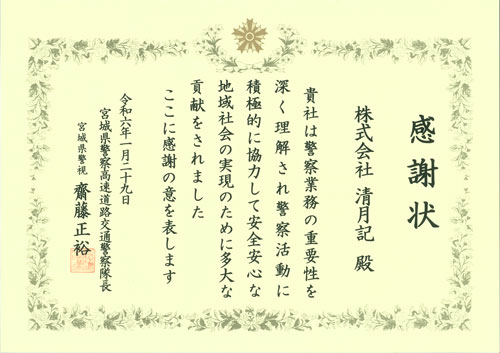 感謝状
株式会社 清月記 殿
貴社は警察業務の重要性を
深く理解され警察活動に
積極的に協力して安全安心な
地域社会の実現のために多大な
貢献をされました
ここに感謝の意を表します
令和六年一月二十九日
宮城県警察高速道路交通警察隊長
宮城県警視 齋藤正裕